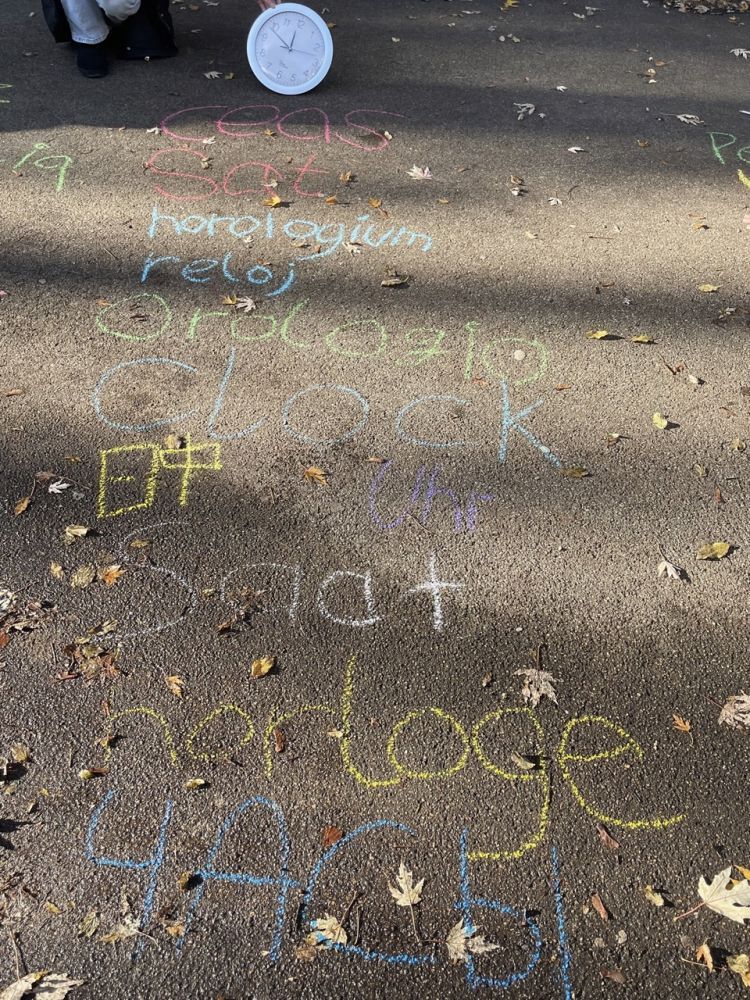 ceas
Sat
horologium
reloj
Orologio
Clock
日中 Uhr
Saat
horloge
ЧАСЫ